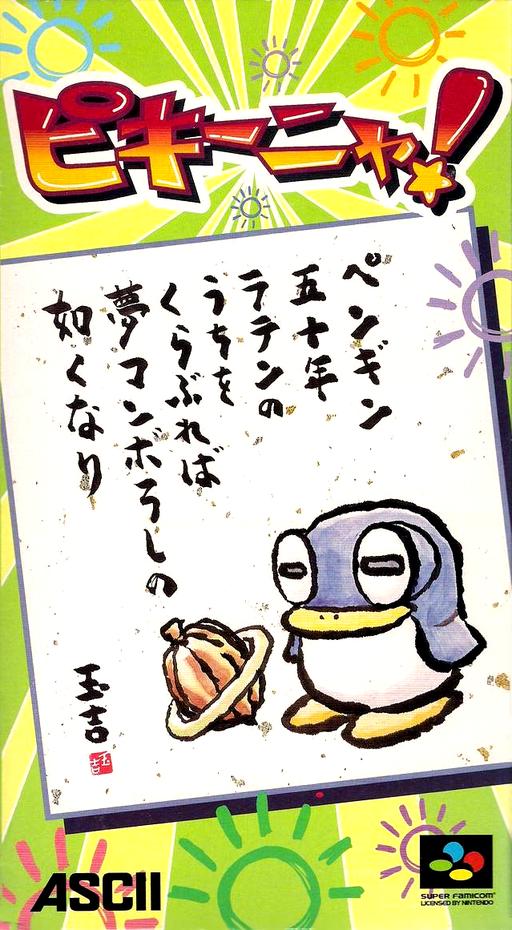 ピキーニャ!
ペンギン
五十年
ラテンの
うちを
くらぶれば
夢マンボろしの
如くなり
玉吉
玉吉
ASCII
SUPER FAMICOM
LICENSED BY NINTENDO